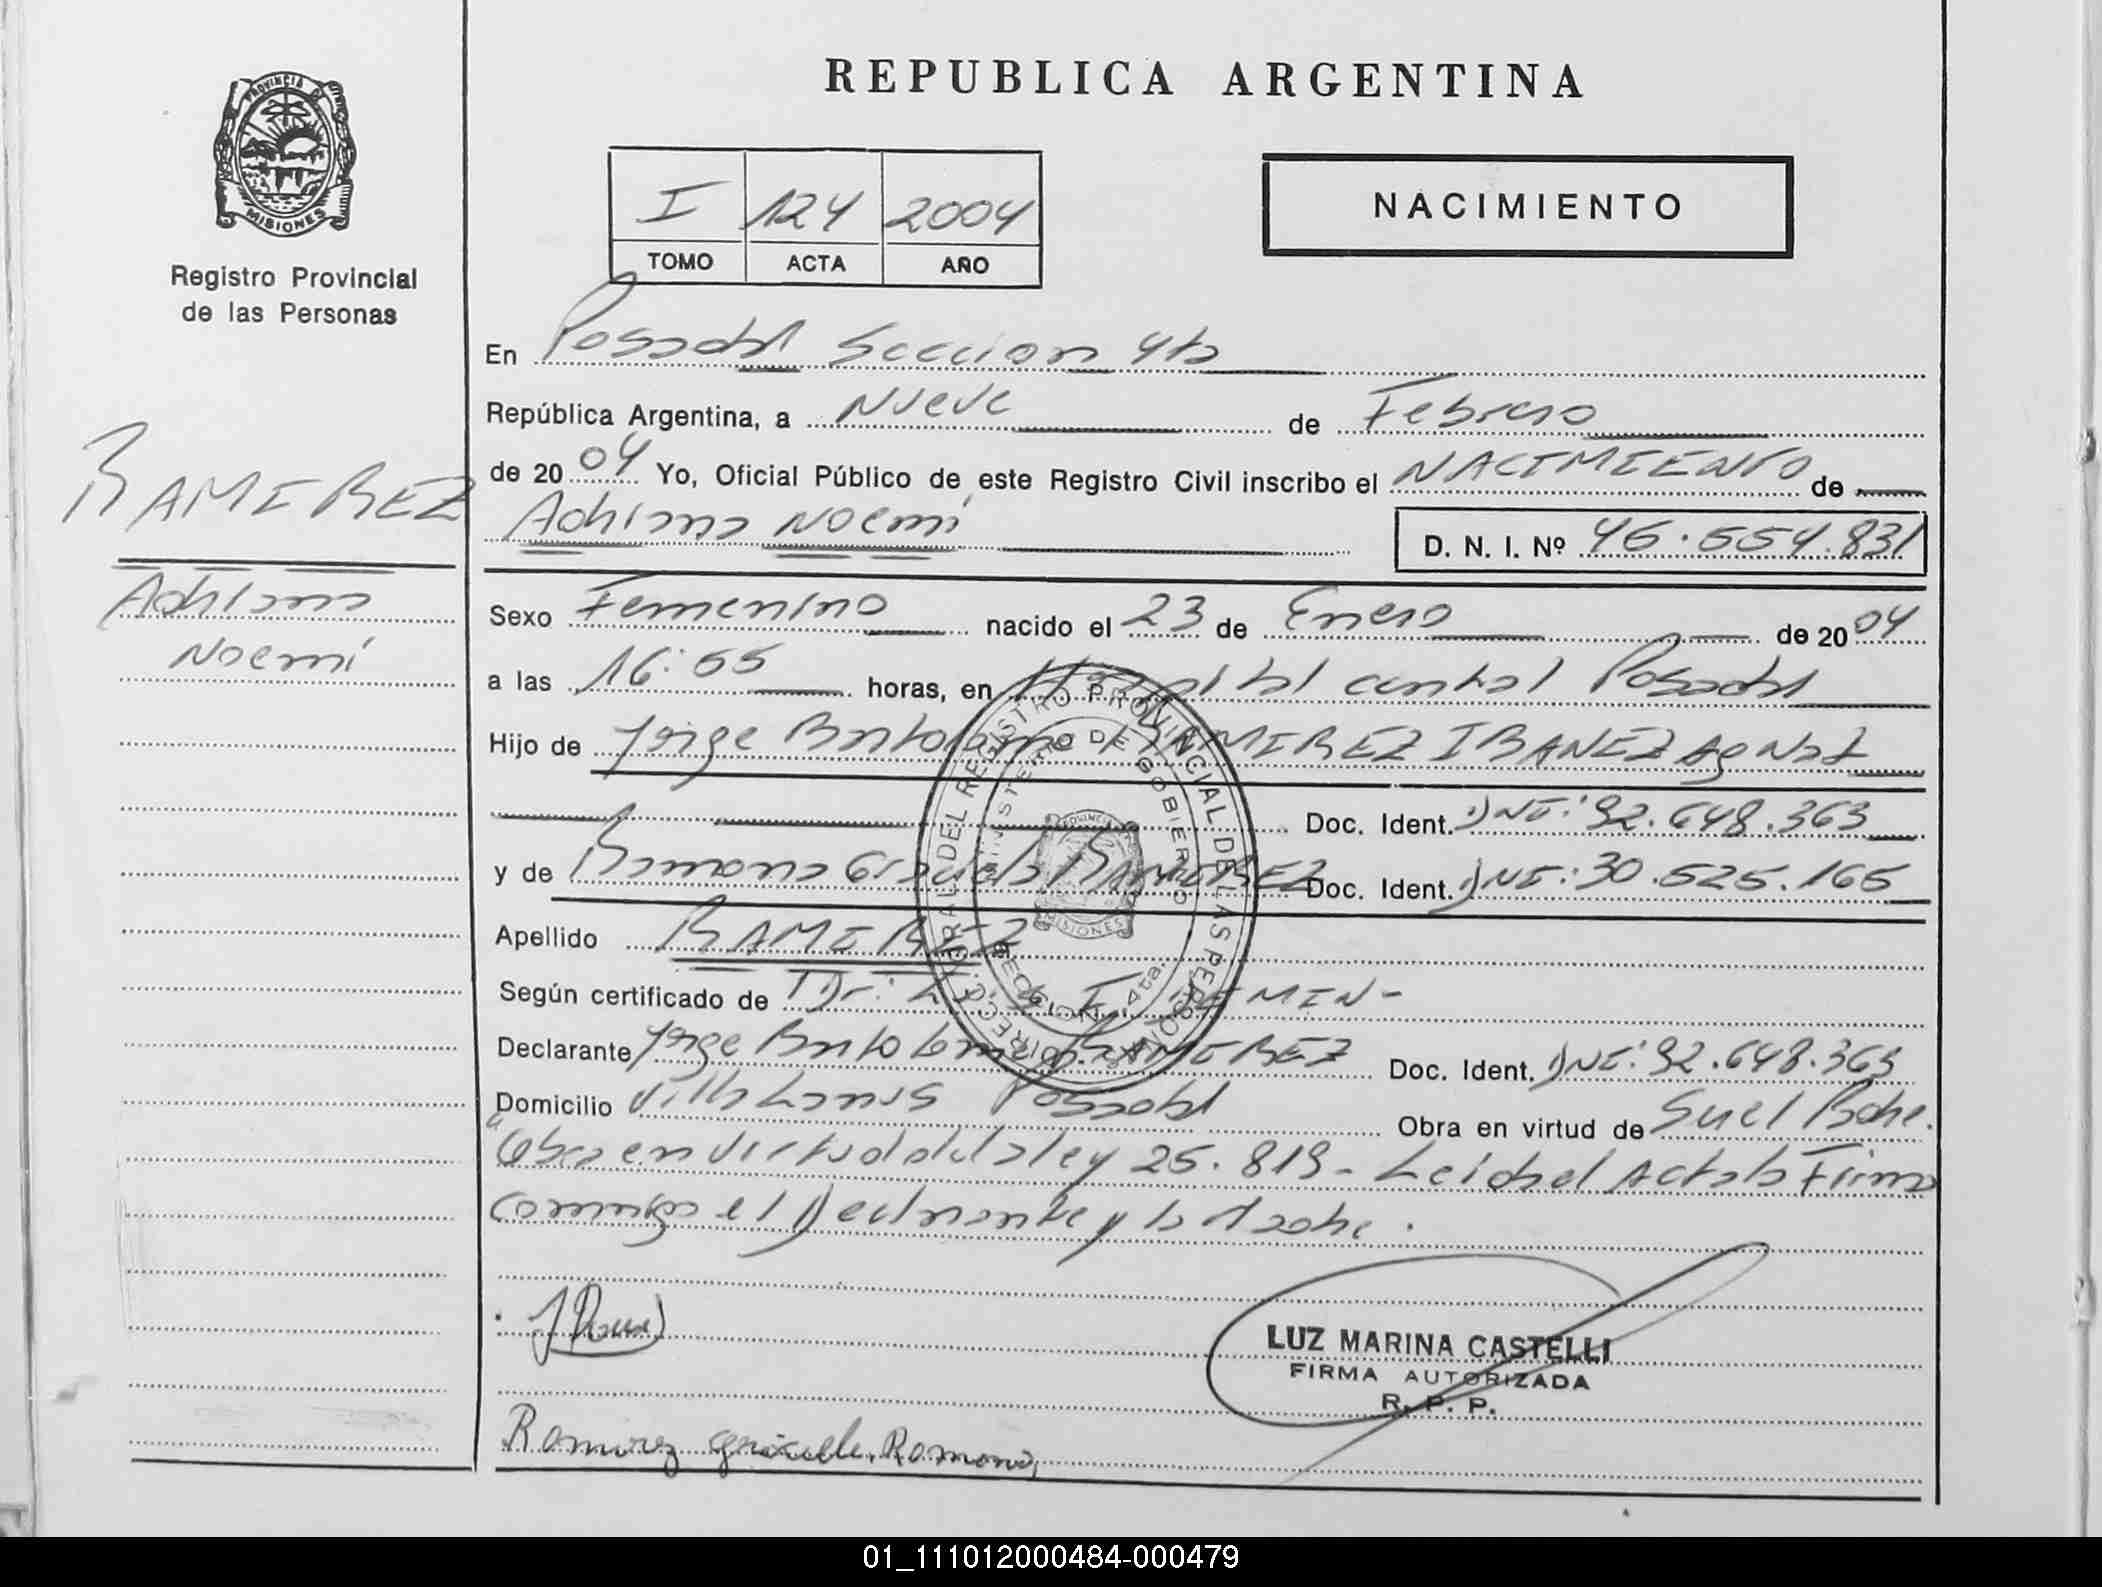 PROVINCIA DE
MISIONES
Registro Provincial
de las Personas
RAMIREZ
Adriana
Noemí
REPUBLICA ARGENTINA
I 124 2004
TOMO ACTA AÑO
NACIMIENTO
En Posadas Seccion 4ta
República Argentina, a Nueve de Febrero
de 2004 Yo, Oficial Público de este Registro Civil inscribo el NACIMIENTO de
Adriana Noemí D. N. I. Nº 46.554.831
Sexo Femenino nacido el 23 de Enero de 2004
a las 16:55 horas, en Hospital central Posadas
Hijo de Jorge Bartolome RAMIREZ IBAÑEZ Arg Nat
Doc. Ident. DNI: 92.648.363
y de Ramona Graciela RAMIREZ Doc. Ident. DNI: 30.525.165
Apellido RAMIREZ
Según certificado de Dr:
Declarante Jorge Bartolome RAMIREZ Doc. Ident. DNI: 92.648.363
Domicilio Villa Lanus Posadas Obra en virtud de Su el Padre.
Obra en virtud de la ley 25.819- Leida el Acta la Firma
conmigo el Declarante y la Madre.
DIREC. GRAL. DEL REGISTRO PROVINCIAL DE LAS PERSONAS
MINISTERIO DE GOBIERNO
PROVINCIA
MISIONES
SECCION 4ta.
LUZ MARINA CASTELLI
FIRMA AUTORIZADA
R. P. P.
Ramirez griselda Ramona
01_111012000484-000479